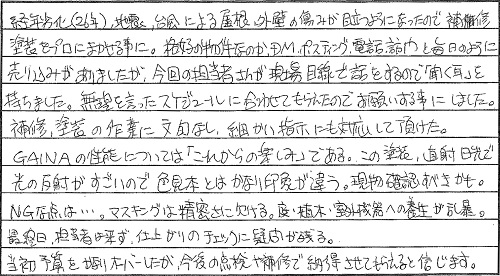 経年劣化(26年)、地震、台風による屋根、外壁の傷みが目立つようになったので補修
塗装をプロにまかせる事に。格好の物件なのか、DM、ポスティング、電話、訪門と毎日のように
売り込みがありましたが、今回の担当者さんが現場目線で話をするので「聞く耳」を
持ちました。無理を言ったスケジュールに合わせてもらえたのでお願いする事にしました。
補修、塗装の作業に文句なし、細かい指示にも対応して頂けた。
GAINAの性能については「これからの楽しみ」である。この塗装、直射日光で
光の反射がすごいので色見本とはかなり印象が違う。現物確認すべきかも。
NGな点は…。マスキングは精密さに欠ける。庭・植木・室外機器への養生が乱暴。
最終日、担当者は来ず、仕上がりのチェックに疑問が残る。
当初予算をかなりオーバーしたが、今後の点検や補修で納得させてもらえると信じます。